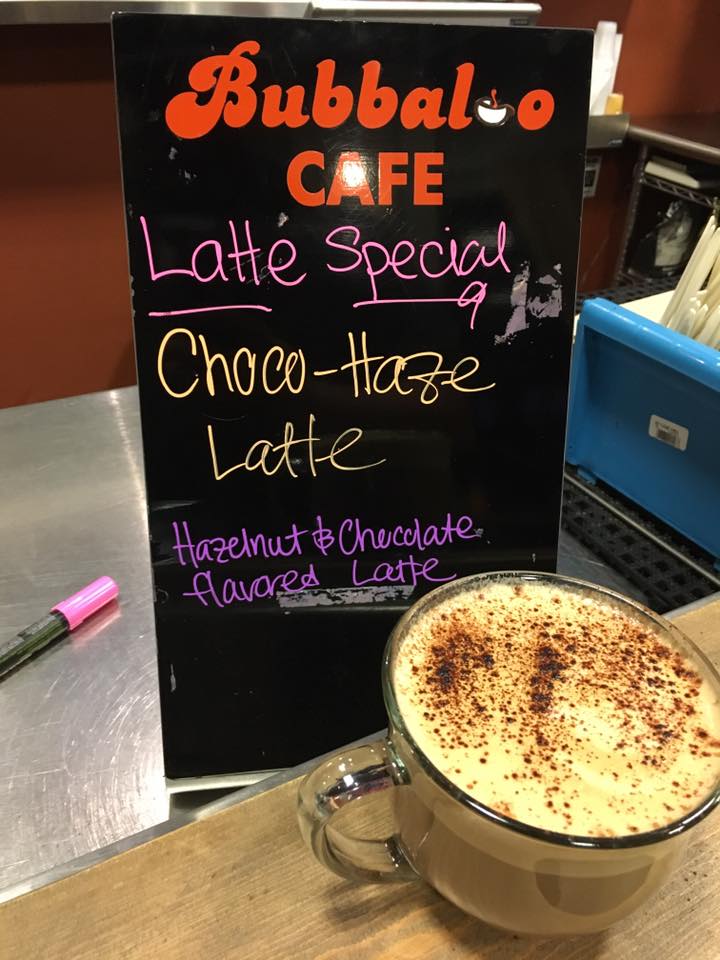 Bubbaloo
CAFE
Latte Special
Choco-Haze
Latte
Hazelnut & Checolate
flavored Latte